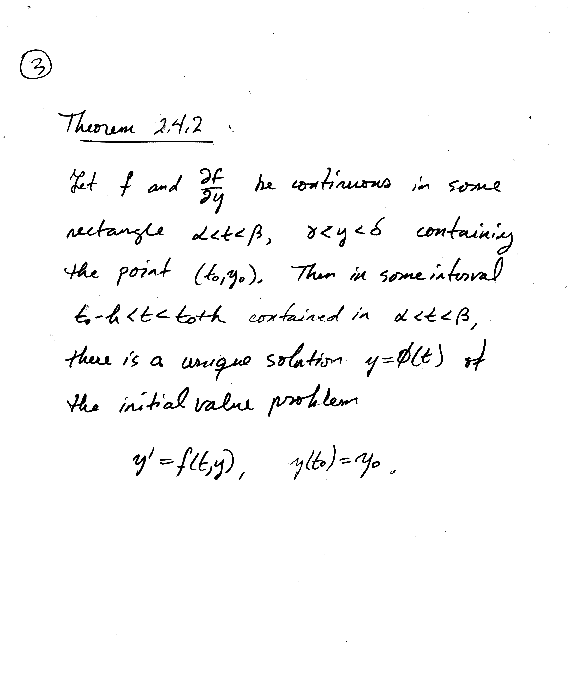 3
Theorem 2.4.2
Let f and ∂f/∂y be continuous in some
rectangle α<t<β, γ<y<δ containing
the point (t₀,y₀). Then in some interval
t₀-h<t<t₀+h contained in α<t<β,
there is a unique solution y=ϕ(t) of
the initial value problem
y'=f(t,y), y(t₀)=y₀.